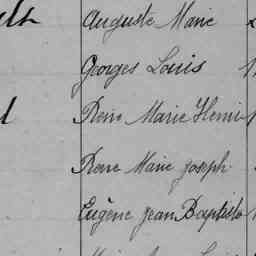 Auguste Marie
Georges Louis
Pierre Marie Henri
Pierre Marie Joseph
Eugène Jean Baptiste